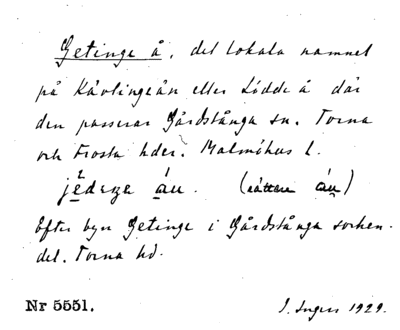 Getinge å, det lokala namnet
på Kävlingeån eller Lödde å där
den passerar Gårdstånga sn. Torna
och Frosta hder. Malmöhus l.
áu. (rättare áu)
Efter byn Getinge i Gårdstånga socken
del. Torna hd.
Nr 5551. I. Ingers 1929.